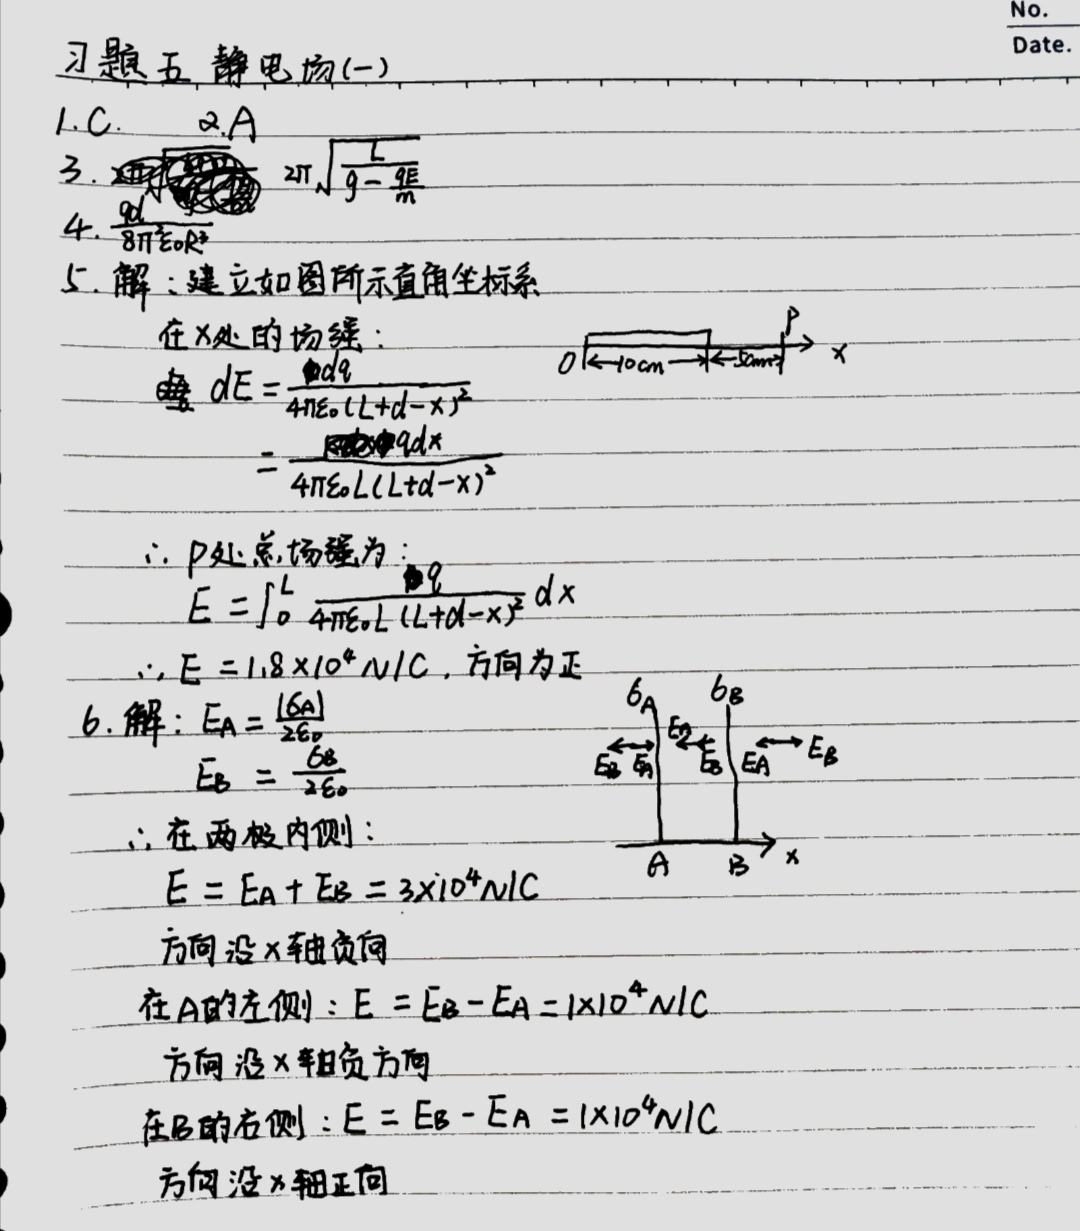 No.
Date.
习题五 静电场(一)
1. C. 2. A
3. 2π√(L/(g - qE/m))
4. qd/(8π²ε₀R³)
5. 解：建立如图所示直角坐标系
在x处的场强：
dE = dq/(4πε₀(L+d-x)²)
= qdx/(4πε₀L(L+d-x)²)
O 10cm 5cm P x
∴ P处总场强为：
E = ∫₀ᴸ q/(4πε₀L(L+d-x)²) dx
∴ E = 1.8×10⁴ N/C, 方向为正
6. 解：E_A = |σ_A|/(2ε₀)
E_B = σ_B/(2ε₀)
σ_A σ_B
E_B E_A E_A E_B E_A E_B
A B x
∴ 在两极内侧：
E = E_A + E_B = 3×10⁴ N/C
方向沿x轴负向
在A的左侧：E = E_B - E_A = 1×10⁴ N/C
方向沿x轴负方向
在B的右侧：E = E_B - E_A = 1×10⁴ N/C
方向沿x轴正向